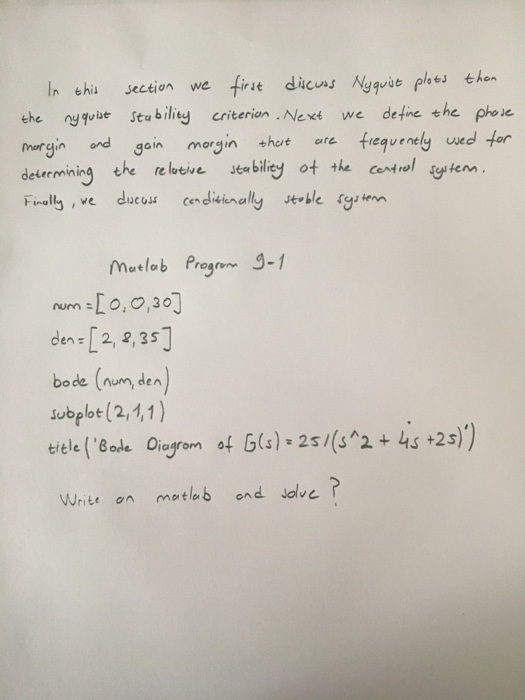 In this section we first discuss Nyquist plots then
the nyquist stability criterion. Next we define the phase
margin and gain margin that are frequently used for
determining the relative stability of the control system.
Finally, we discuss conditionally stable system
Matlab Program 9-1
num = [0,0,30]
den = [2, 8, 35]
bode (num, den)
subplot (2,1,1)
title ('Bode Diagram of G(s) = 25/(s^2 + 4s + 25)')
Write on matlab and solve ?